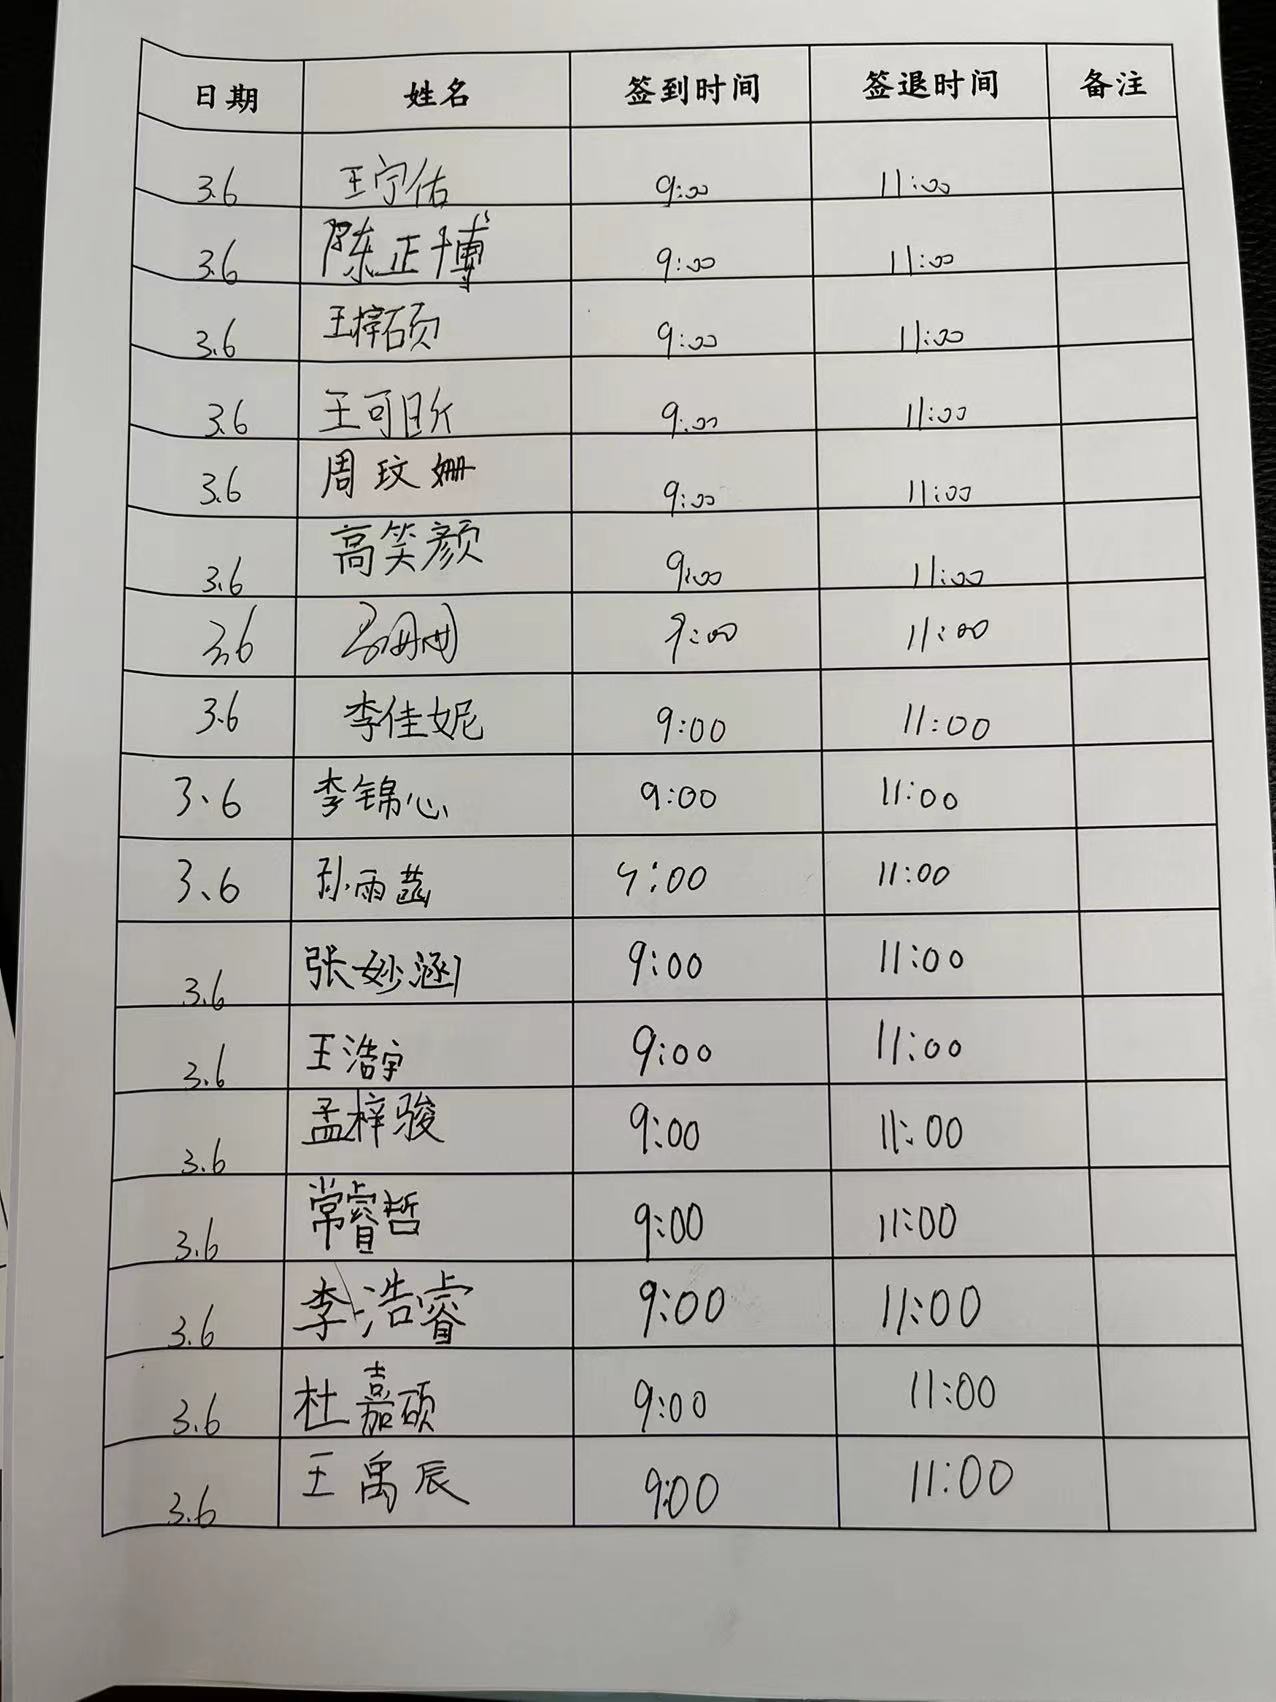 日期 姓名 签到时间 签退时间 备注
3.6 王宁佑 9:00 11:00
3.6 陈正博 9:00 11:00
3.6 王梓硕 9:00 11:00
3.6 王可昕 9:00 11:00
3.6 周玟姗 9:00 11:00
3.6 高笑颜 9:00 11:00
3.6 9:00 11:00
3.6 李佳妮 9:00 11:00
3.6 李锦心 9:00 11:00
3.6 孙雨菡 9:00 11:00
3.6 张妙涵 9:00 11:00
3.6 王浩宇 9:00 11:00
3.6 孟梓骏 9:00 11:00
3.6 常睿哲 9:00 11:00
3.6 李浩睿 9:00 11:00
3.6 杜嘉硕 9:00 11:00
3.6 王禹辰 9:00 11:00